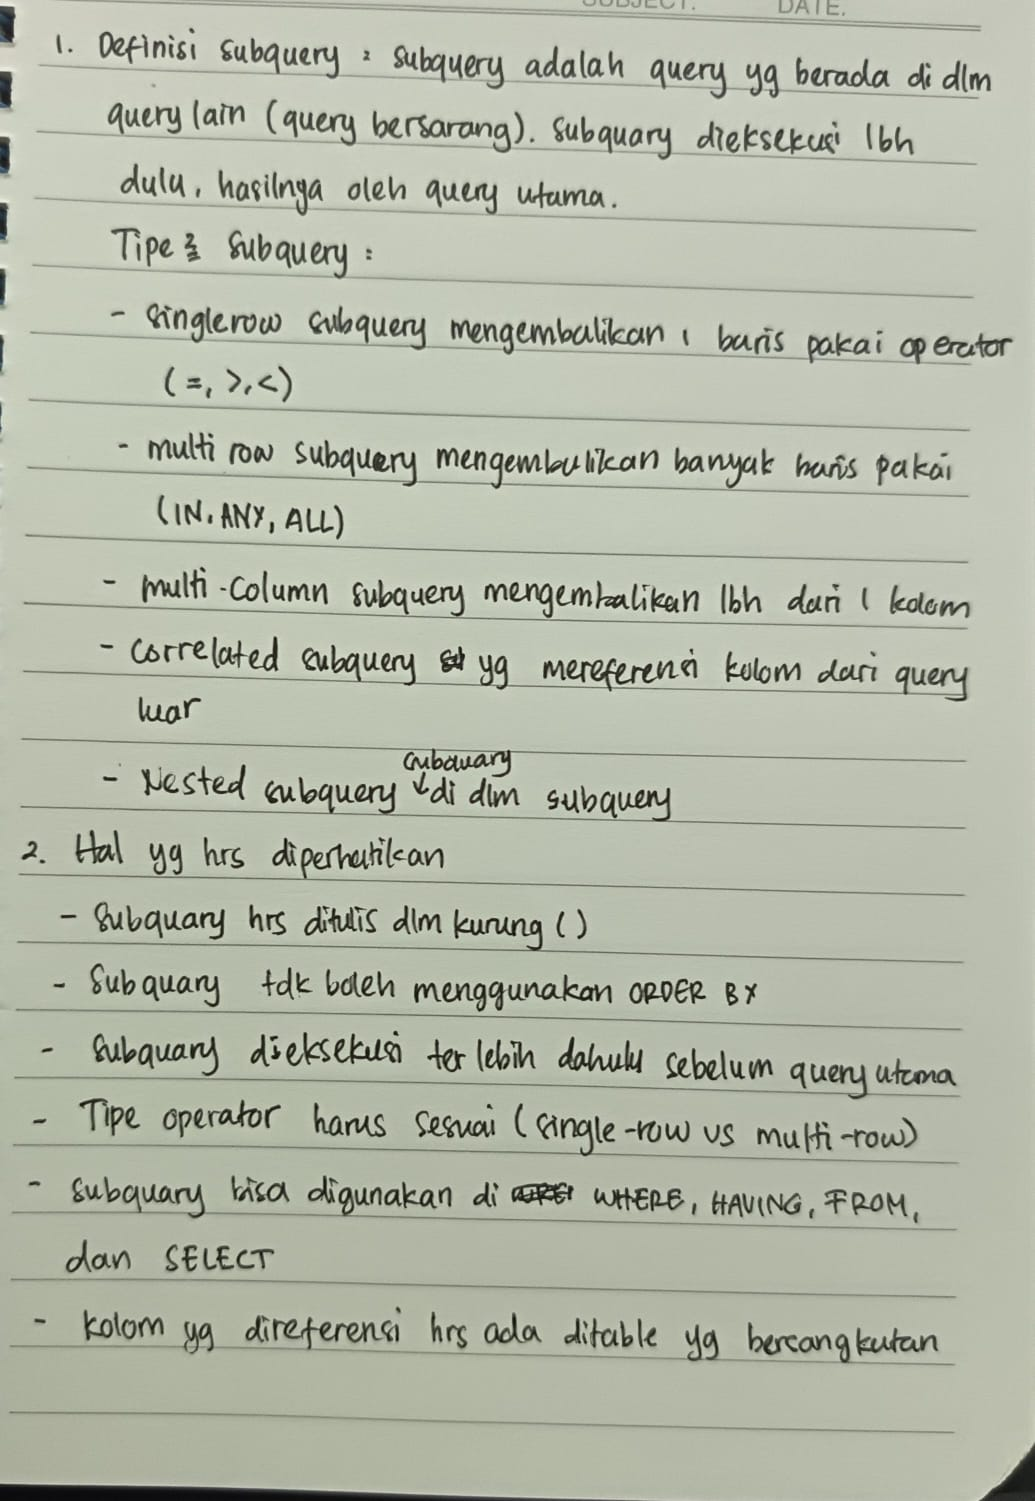 DATE.
1. Definisi subquery : subquery adalah query yg berada di dlm
query lain (query bersarang). subquary dieksekusi lbh
dulu, hasilnya oleh query utama.
Tipe2 subquery :
- singlerow subquery mengembalikan 1 baris pakai operator
(=, >, <)
- multi row subquery mengembalikan banyak baris pakai
(IN, ANY, ALL)
- multi-column subquery mengembalikan lbh dari 1 kolom
- correlated subquery yg mereferensi kolom dari query
luar
subquary
- Nested subquery ↓ di dlm subquery
2. Hal yg hrs diperhatikan
- Subquary hrs ditulis dlm kurung ()
- Subquary tdk boleh menggunakan ORDER BY
- Subquary dieksekusi terlebih dahulu sebelum query utama
- Tipe operator harus sesuai (single-row vs multi-row)
- subquary bisa digunakan di WHERE, HAVING, FROM,
dan SELECT
- kolom yg direferensi hrs ada ditable yg bersangkutan